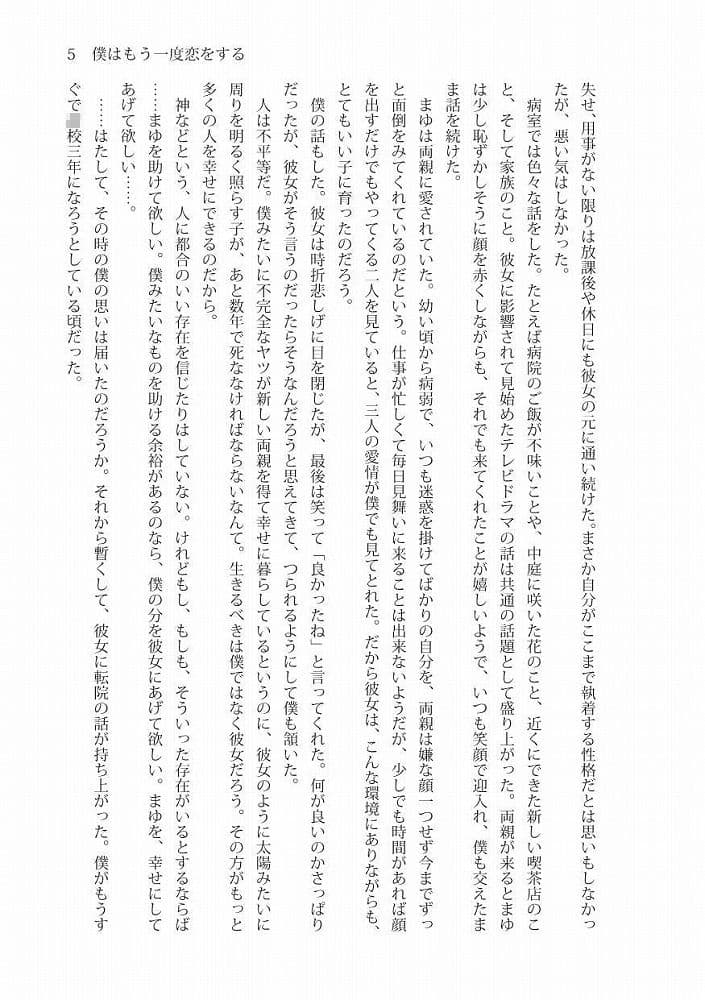 5　僕はもう一度恋をする
失せ、用事がない限りは放課後や休日にも彼女の元に通い続けた。まさか自分がここまで執着する性格だとは思いもしなかっ
たが、悪い気はしなかった。
　病室では色々な話をした。たとえば病院のご飯が不味いことや、中庭に咲いた花のこと、近くにできた新しい喫茶店のこ
と、そして家族のこと。彼女に影響されて見始めたテレビドラマの話は共通の話題として盛り上がった。両親が来るとまゆ
は少し恥ずかしそうに顔を赤くしながらも、それでも来てくれたことが嬉しいようで、いつも笑顔で迎入れ、僕も交えたま
ま話を続けた。
　まゆは両親に愛されていた。幼い頃から病弱で、いつも迷惑を掛けてばかりの自分を、両親は嫌な顔一つせず今までずっ
と面倒をみてくれているのだという。仕事が忙しくて毎日見舞いに来ることは出来ないようだが、少しでも時間があれば顔
を出すだけでもやってくる二人を見ていると、三人の愛情が僕でも見てとれた。だから彼女は、こんな環境にありながらも、
とてもいい子に育ったのだろう。
　僕の話もした。彼女は時折悲しげに目を閉じたが、最後は笑って「良かったね」と言ってくれた。何が良いのかさっぱり
だったが、彼女がそう言うのだったらそうなんだろうと思えてきて、つられるようにして僕も頷いた。
　人は不平等だ。僕みたいに不完全なヤツが新しい両親を得て幸せに暮らしているというのに、彼女のように太陽みたいに
周りを明るく照らす子が、あと数年で死ななければならないなんて。生きるべきは僕ではなく彼女だろう。その方がもっと
多くの人を幸せにできるのだから。
　神などという、人に都合のいい存在を信じたりはしていない。けれどもし、もしも、そういった存在がいるとするならば
……まゆを助けて欲しい。僕みたいなものを助ける余裕があるのなら、僕の分を彼女にあげて欲しい。まゆを、幸せにして
あげて欲しい……。
　……はたして、その時の僕の思いは届いたのだろうか。それから暫くして、彼女に転院の話が持ち上がった。僕がもうす
ぐで校三年になろうとしている頃だった。